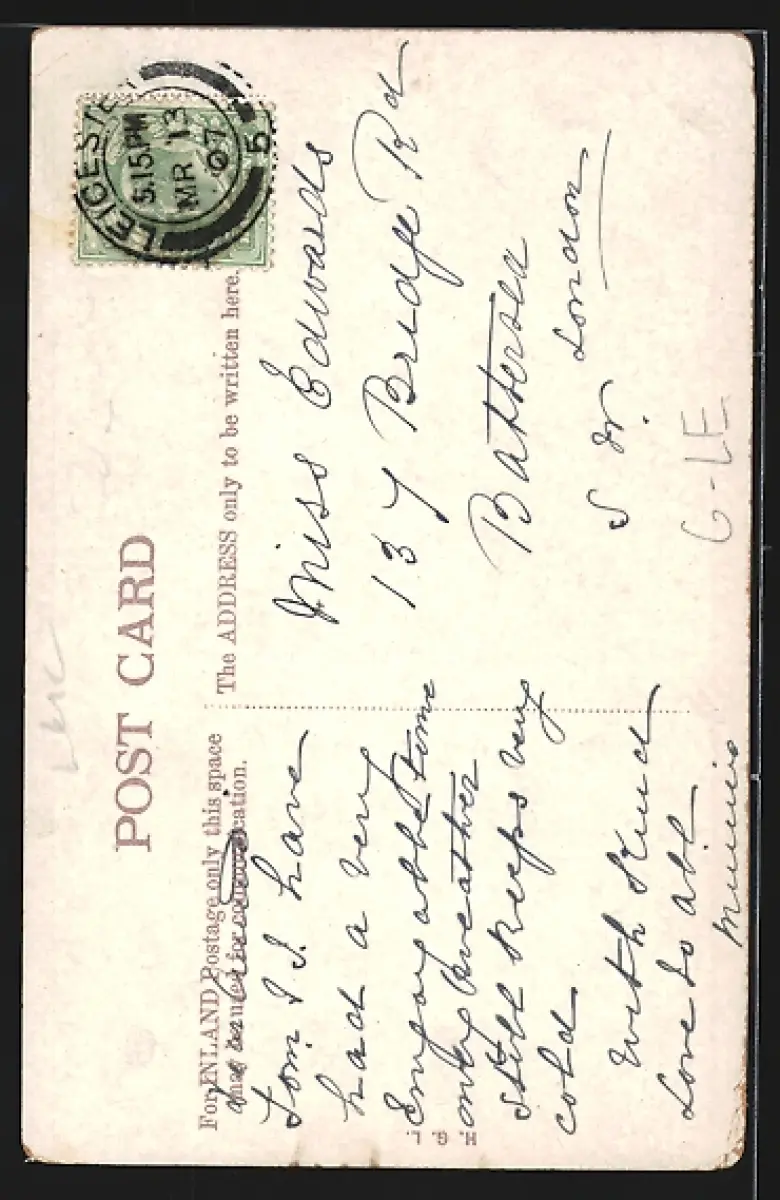 POST CARD
For INLAND Postage only this space
may be used for communication.
The ADDRESS only to be written here.
LEICESTER
5.15 PM
MR 13
07
5
Tom & I have
had a very
Enjoyable time
only weather
still keeps very
cold
With Kind
Love to all
Minnie
Miss Edwards
137 Bridge Rd
Battersea
S. W. London
G-LE
Leic
H. G. L.